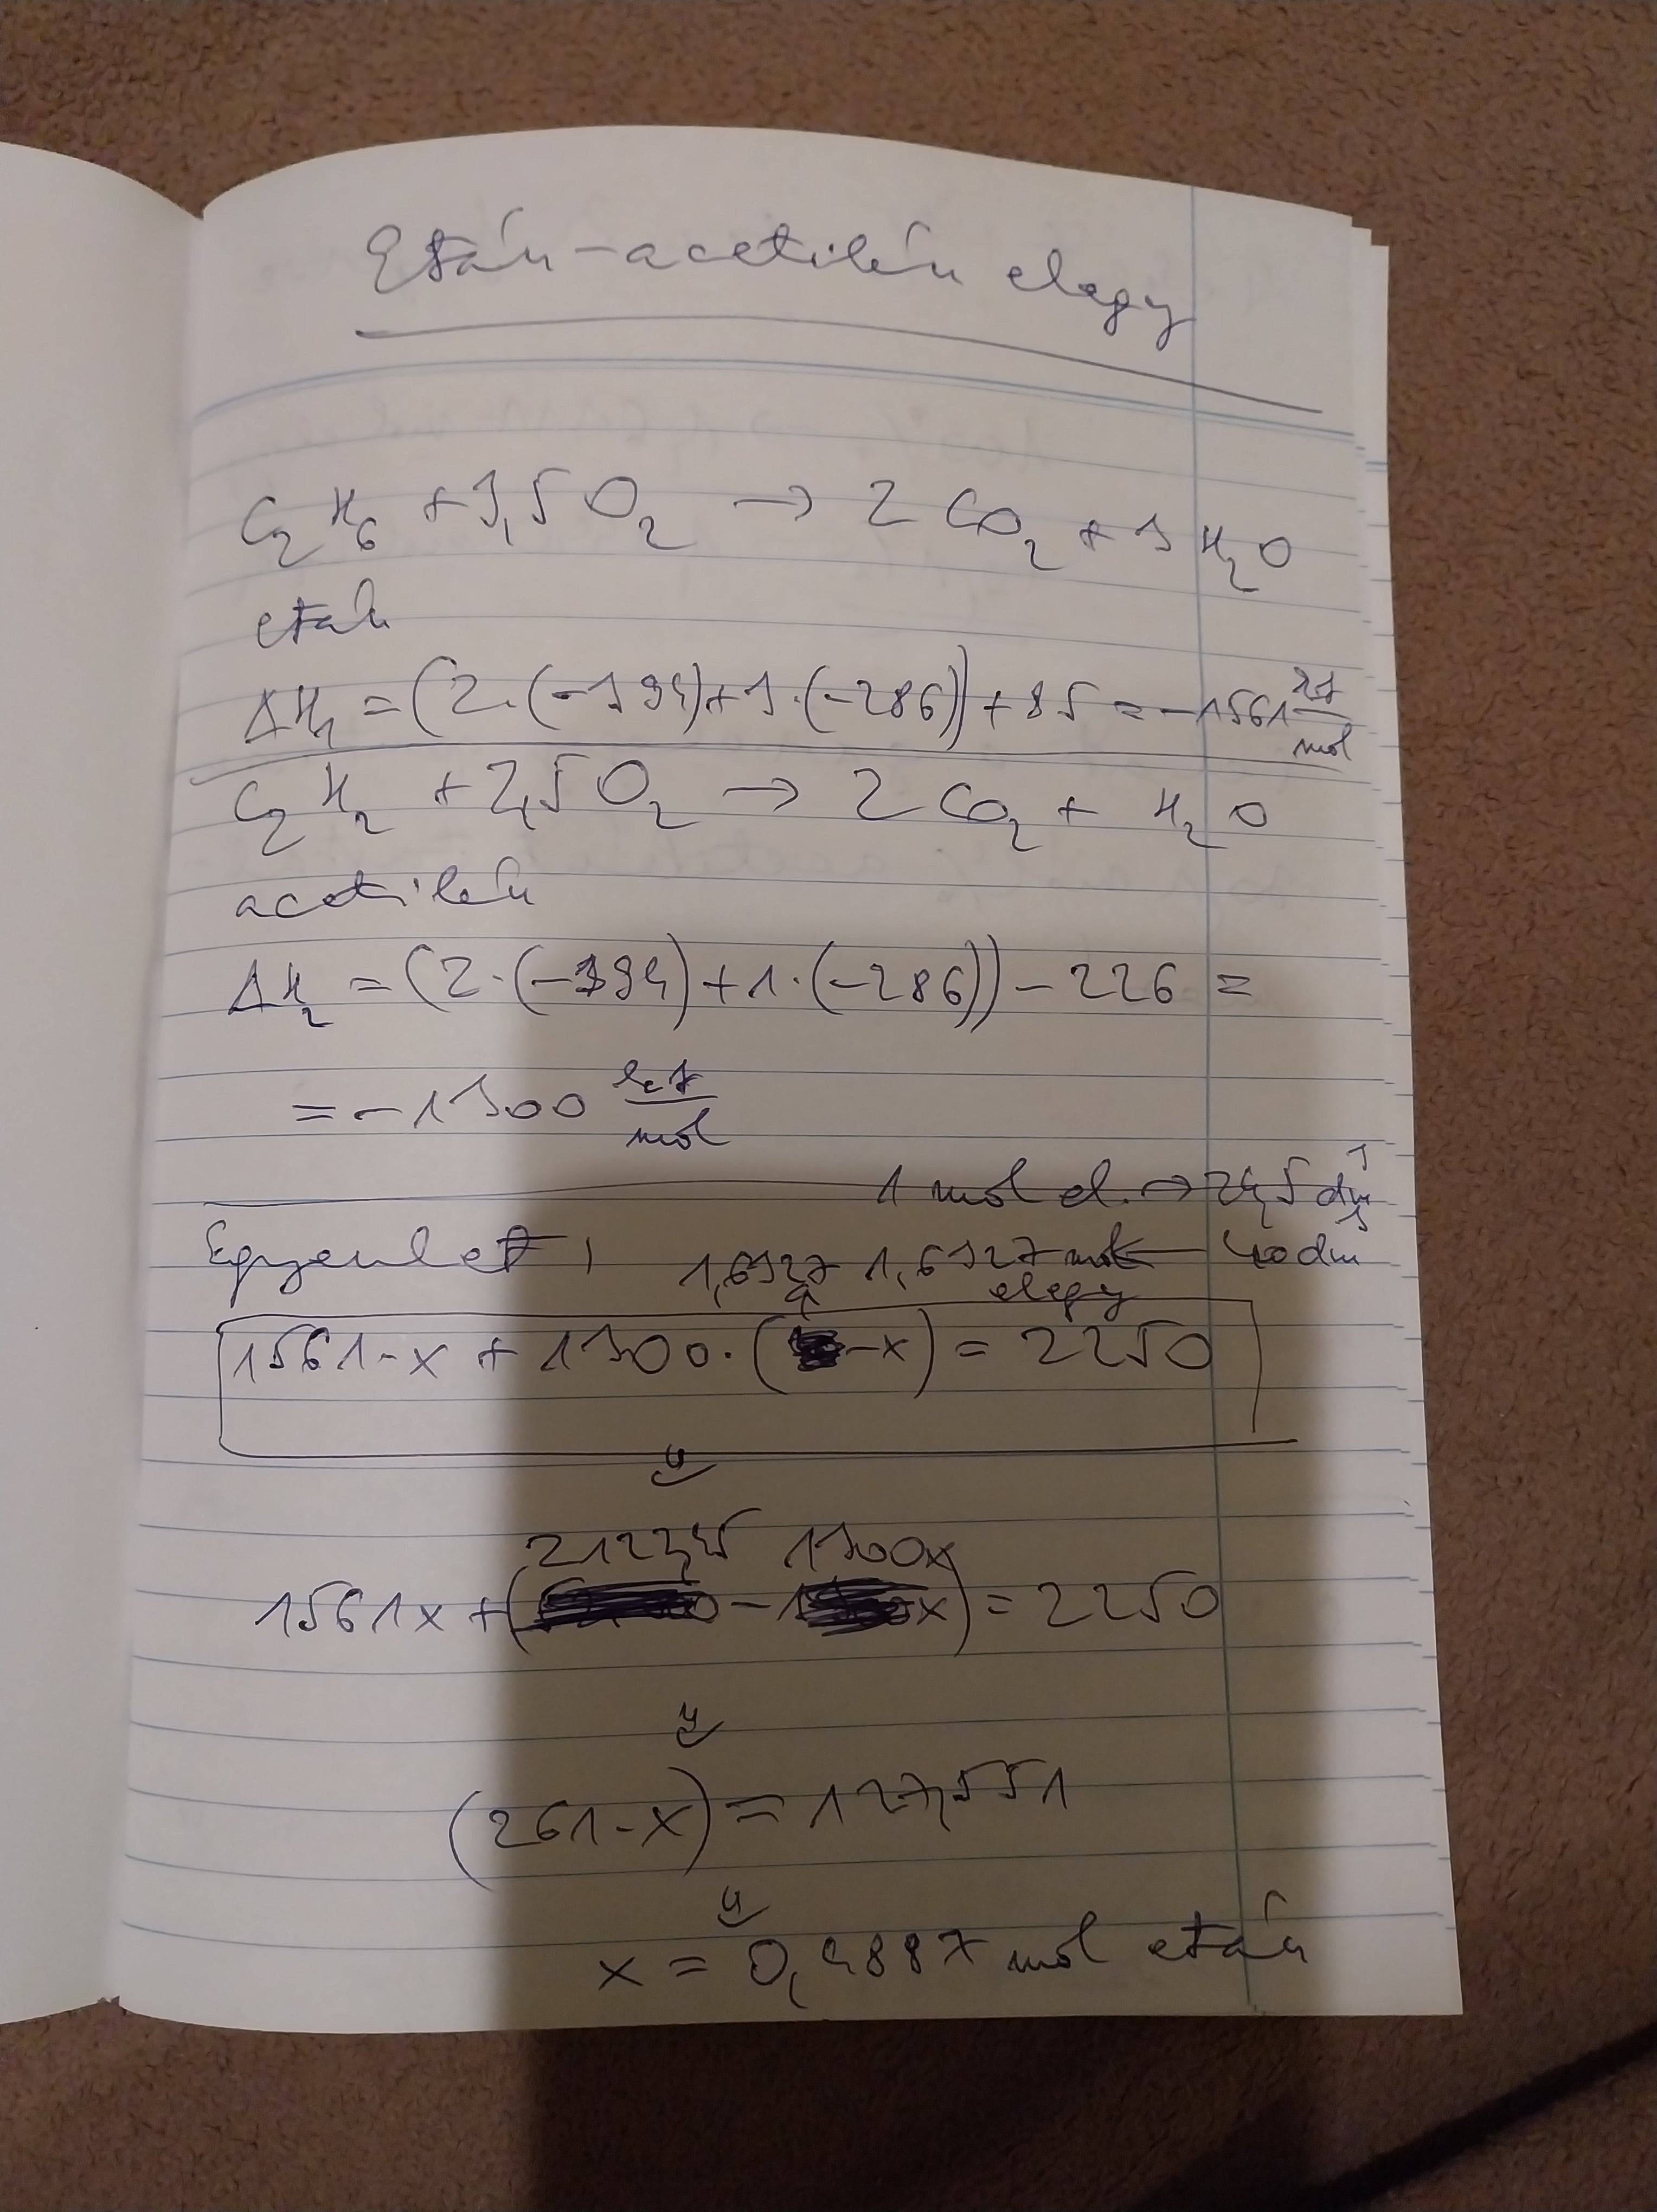 Etán-acetilén elegy
C₂H₆ + 3,5 O₂ → 2 CO₂ + 3 H₂O
etán
ΔH₁ = (2·(-394)+3·(-286))+85 = -1561 kJ/mol
C₂H₂ + 2,5 O₂ → 2 CO₂ + H₂O
acetilén
ΔH₂ = (2·(-394)+1·(-286))-226 =
= -1300 kJ/mol
1 mol el. → 24,5 dm³
Egyenlet: 1,6327 1,6327 mol ← 40 dm³
elegy
1561·x + 1300·( -x) = 2250
⇓
2122,45 1300x
1561x + ( - x) = 2250
⇓
(261·x) = 127,551
⇓
x = 0,4887 mol etán